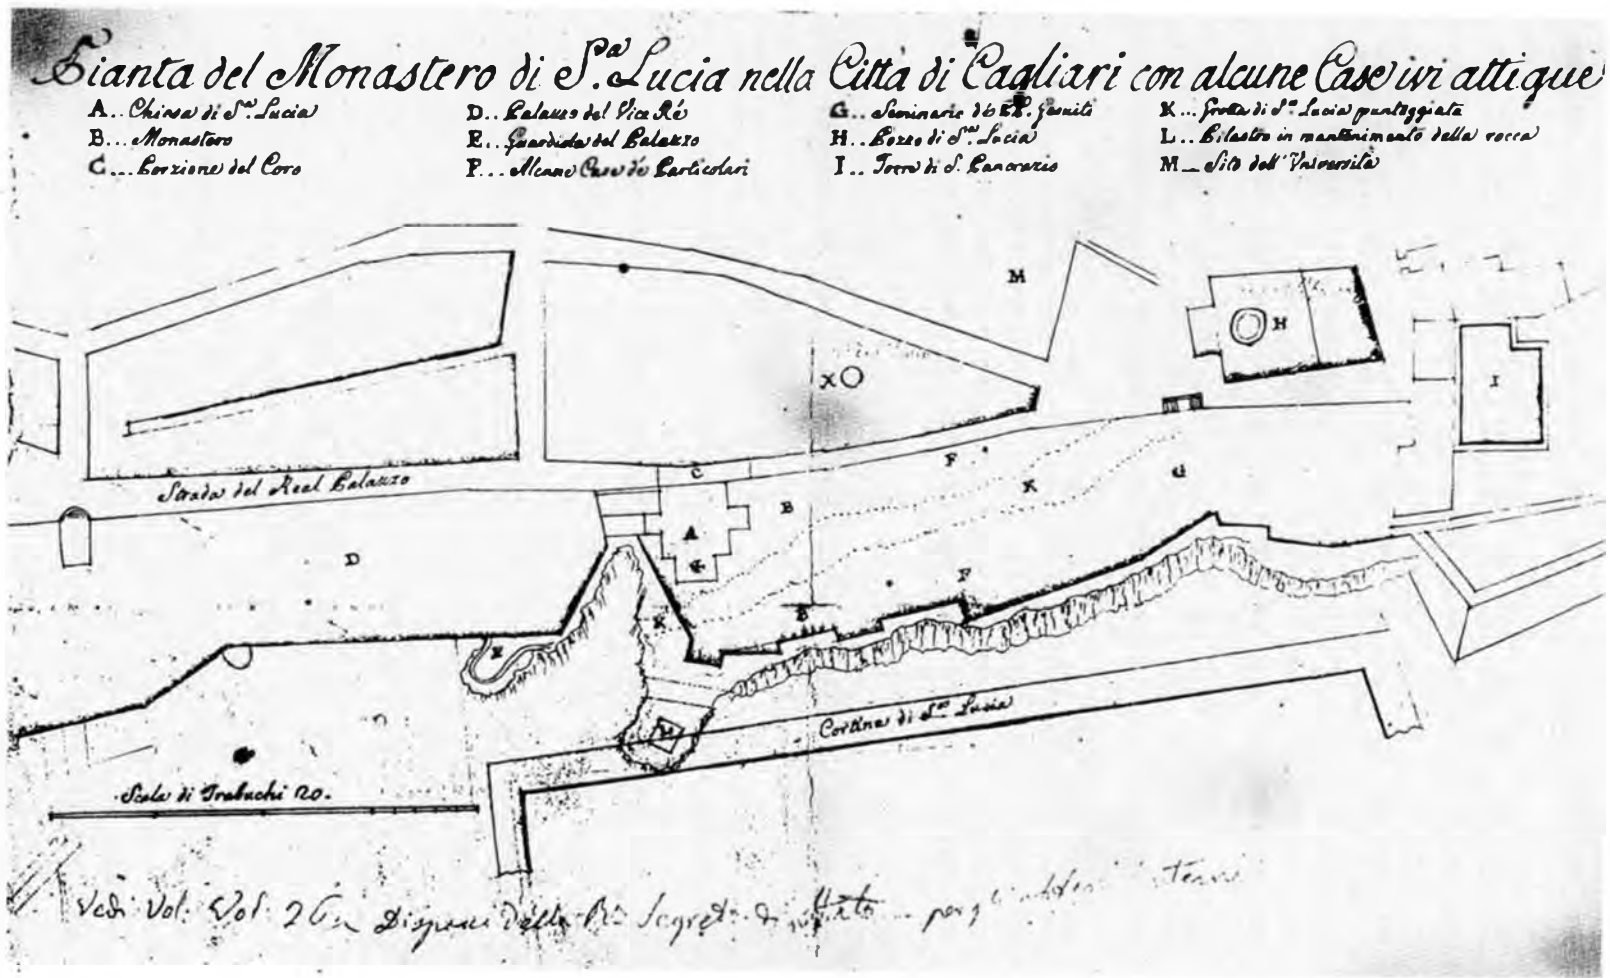 Pianta del Monastero di S.ª Lucia nella Città di Cagliari con alcune Case ivi attigue
A.. Chiesa di S.ª Lucia
B... Monastero
C... Porzione del Coro
D.. Palazzo del Vice Ré
E.. Guardiola del Palazzo
F... Alcune Case de Particolari
G.. Seminario de PP. Gesuiti
H.. Pozzo di S.ª Lucia
I.. Torre di S. Pancrazio
K... Grotta di S.ª Lucia punteggiata
L.. Pilastro in mantenimento della rocca
M.. Sito dell'Università
M
H
I
X
C
F
K
G
B
A
D
F
B
K
E
L
Strada del Real Palazzo
Cortina di S.ª Lucia
Scala di Trabuchi 20.
Vedi Vol. 2 Dispacci della R.ª Segret.ª di per gli